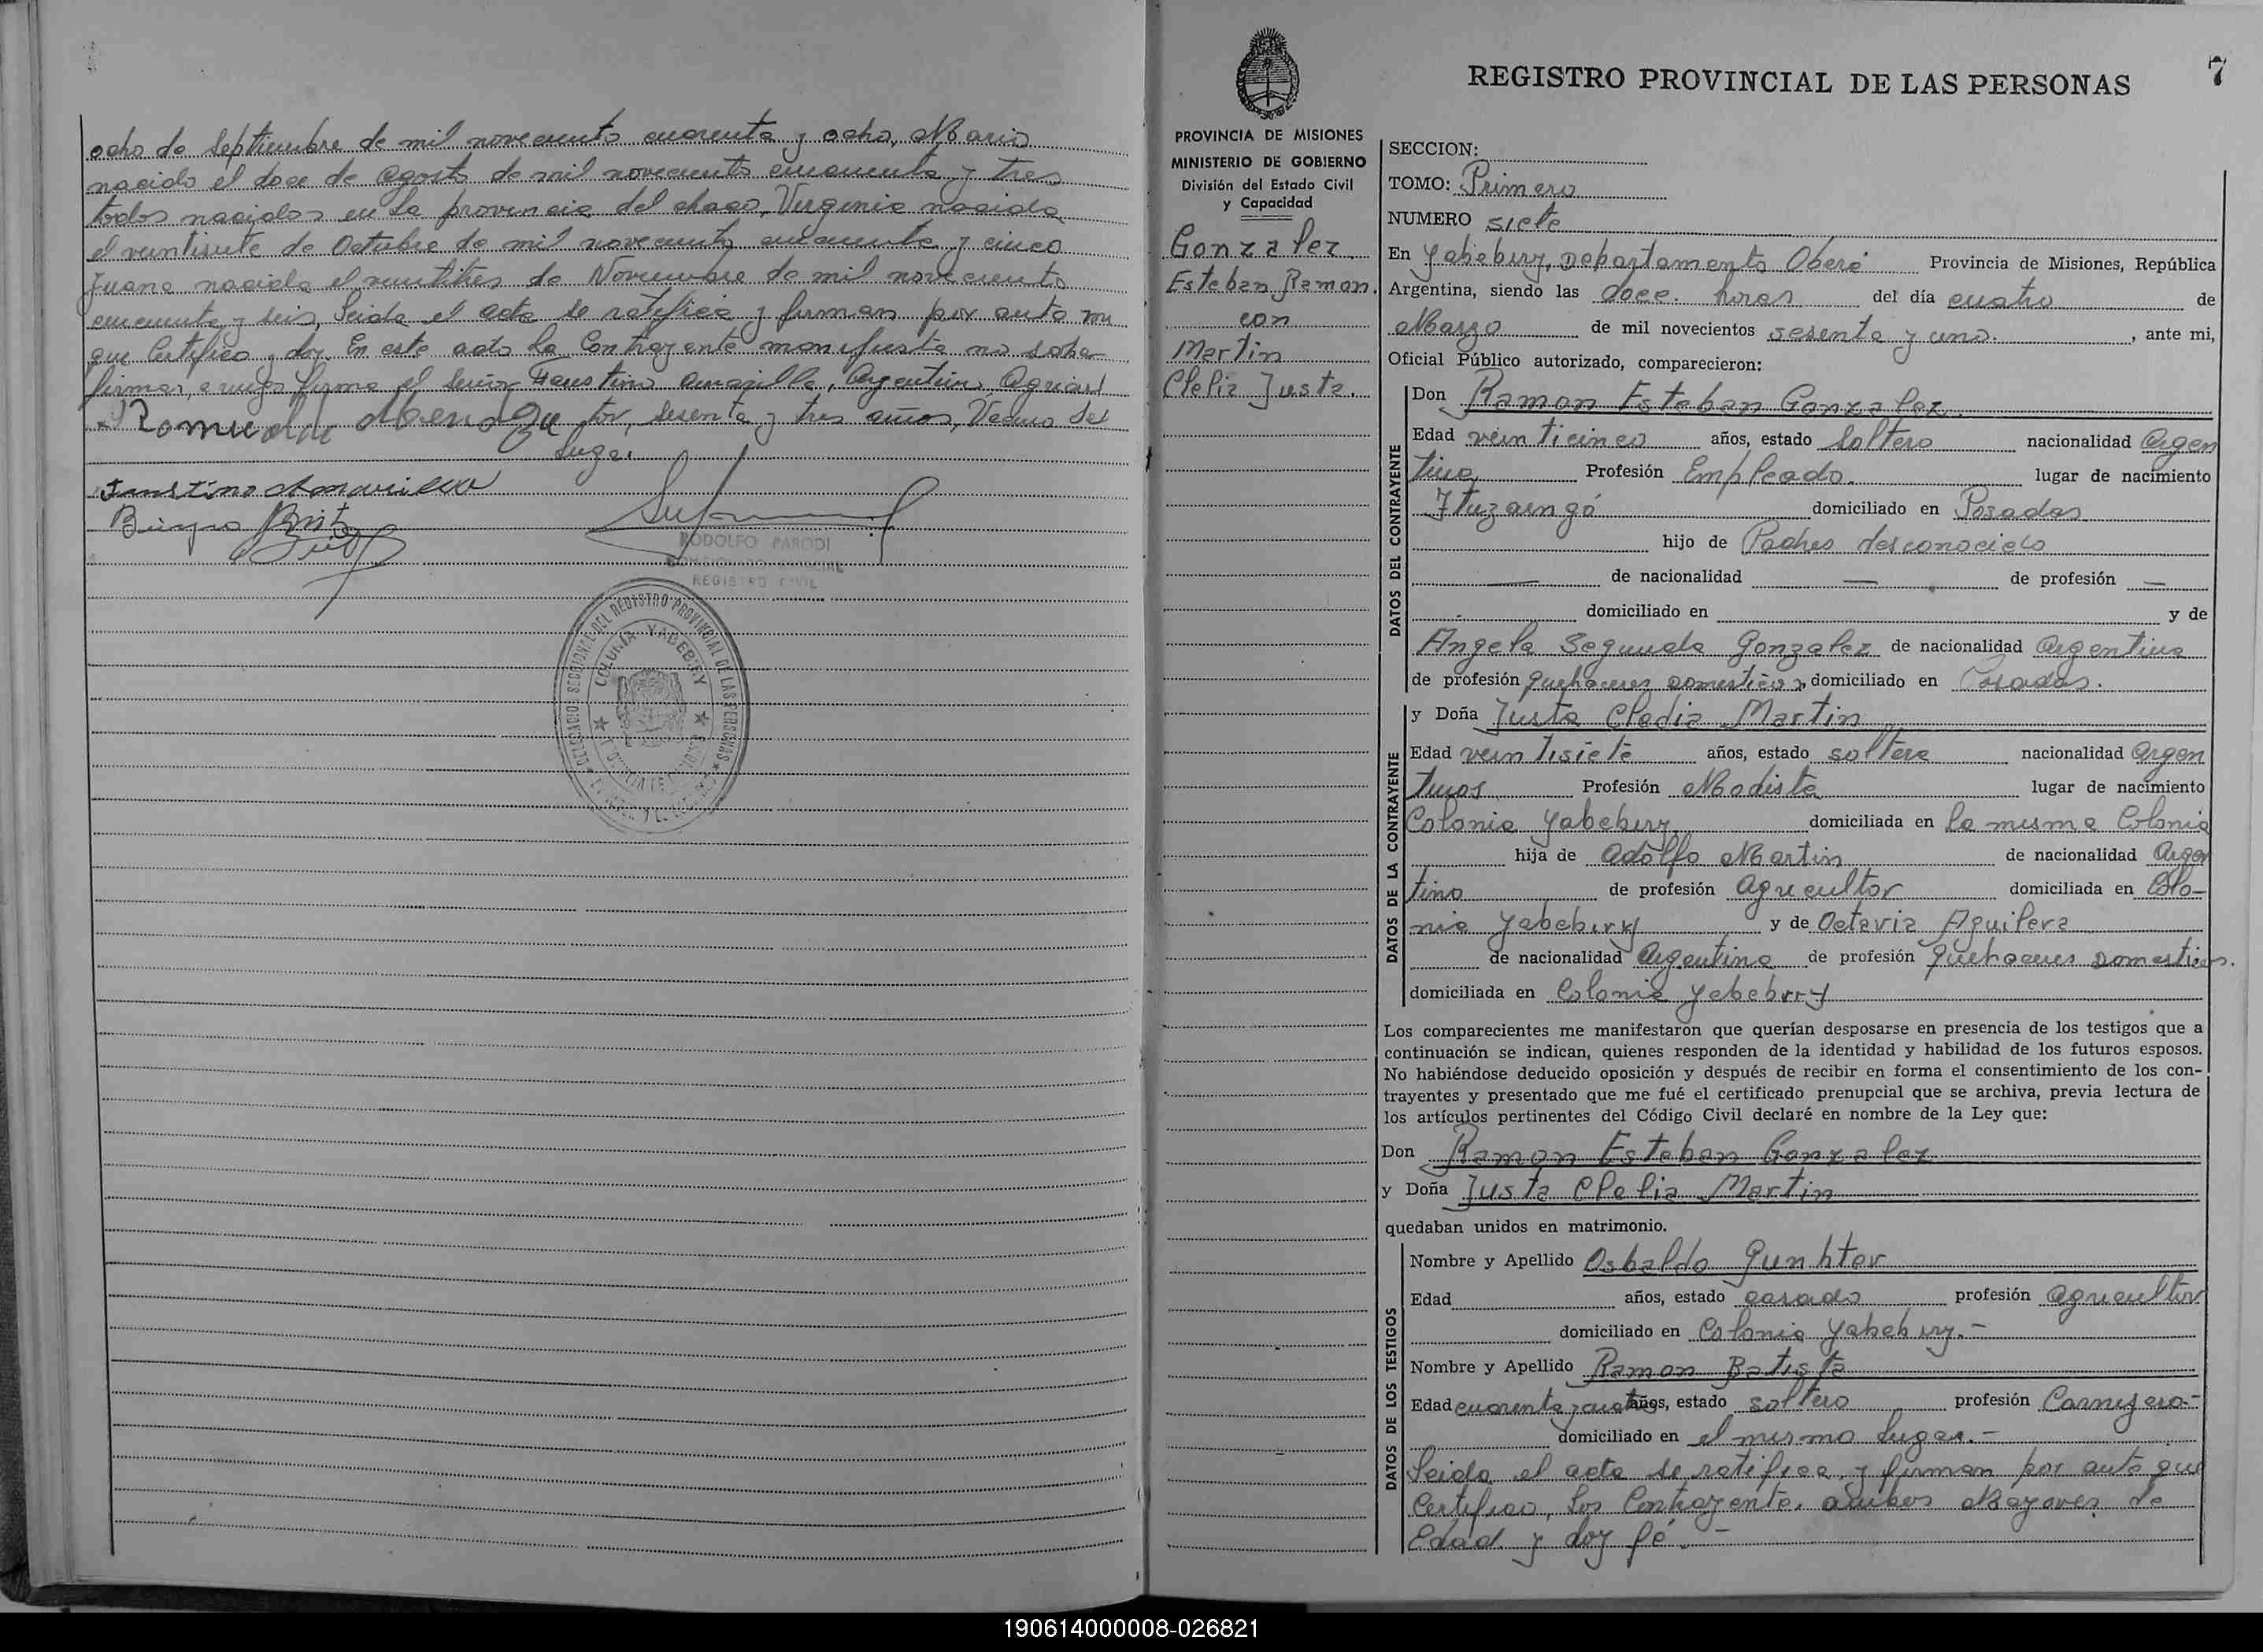 ocho de Septiembre de mil novecientos cuarenta y ocho, Mario
nacido el doce de Agosto de mil novecientos cincuenta y tres
todos nacidos en la provincia del chaco, Virginia nacida
el veintisiete de Octubre de mil novecientos cincuenta y cinco
Juana nacida el veintitres de Noviembre de mil novecientos
cincuenta y seis, Leida el acta se ratifica y firman por ante mi
que Certifico y doy. En este acto la Contrayente manifiesta no saber
firmar, a ruego firma el Señor Faustino Amarilla, Argentino, Agricul
Romualdo tor, sesenta y tres años, Vecino del
Lugar
Faustino Amarilla
RODOLFO PARODI
REGISTRO CIVIL
DELEGACION SECCIONAL DEL REGISTRO PROVINCIAL DE LAS PERSONAS
COLONIA YABEBIRY
7
REGISTRO PROVINCIAL DE LAS PERSONAS
PROVINCIA DE MISIONES
MINISTERIO DE GOBIERNO
División del Estado Civil
y Capacidad
Gonzalez
Esteban Ramon.
con
Martin
Clelia Justa.
SECCION:
TOMO: Primero
NUMERO siete
En Yabebiry, Departamento Oberá Provincia de Misiones, República
Argentina, siendo las doce. horas del día cuatro de
Marzo de mil novecientos sesenta y uno. , ante mi,
Oficial Público autorizado, comparecieron:
DATOS DEL CONTRAYENTE
Don Ramon Esteban Gonzalez.
Edad veinticinco años, estado Soltero nacionalidad Argen
tina Profesión Empleado. lugar de nacimiento
Ituzaingó domiciliado en Posadas
hijo de Padres desconocido
— de nacionalidad — de profesión —
domiciliado en y de
Angela Segunda Gonzalez de nacionalidad Argentina
de profesión quehaceres domesticos domiciliado en Posadas.
DATOS DE LA CONTRAYENTE
y Doña Justa Cledia Martin
Edad veintisiete años, estado soltera nacionalidad Argen
tinas Profesión Modista lugar de nacimiento
Colonia Yabebiry domiciliada en la misma Colonia
hija de Adolfo Martin de nacionalidad Argen
tino de profesión Agricultor domiciliada en Colo-
nia Yabebiry y de Octavia Aguilera
de nacionalidad Argentina de profesión quehaceres Domesticos.
domiciliada en Colonia Yabebiry
Los comparecientes me manifestaron que querían desposarse en presencia de los testigos que a
continuación se indican, quienes responden de la identidad y habilidad de los futuros esposos.
No habiéndose deducido oposición y después de recibir en forma el consentimiento de los con-
trayentes y presentado que me fué el certificado prenupcial que se archiva, previa lectura de
los artículos pertinentes del Código Civil declaré en nombre de la Ley que:
Don Ramon Esteban Gonzalez
y Doña Justa Clelia Martin
quedaban unidos en matrimonio.
DATOS DE LOS TESTIGOS
Nombre y Apellido Osbaldo Gunhter
Edad años, estado casado profesión Agricultor
domiciliado en Colonia Yabebiry.-
Nombre y Apellido Ramon Batista
Edad cuarenta y cuatro años, estado soltero profesión Carnisero-
domiciliado en el mismo Lugar.-
Leida el acta se ratifica y firman por ante que
Certifico, los Contrayente, ambos Mayores de
Edad y doy fé.-
190614000008-026821